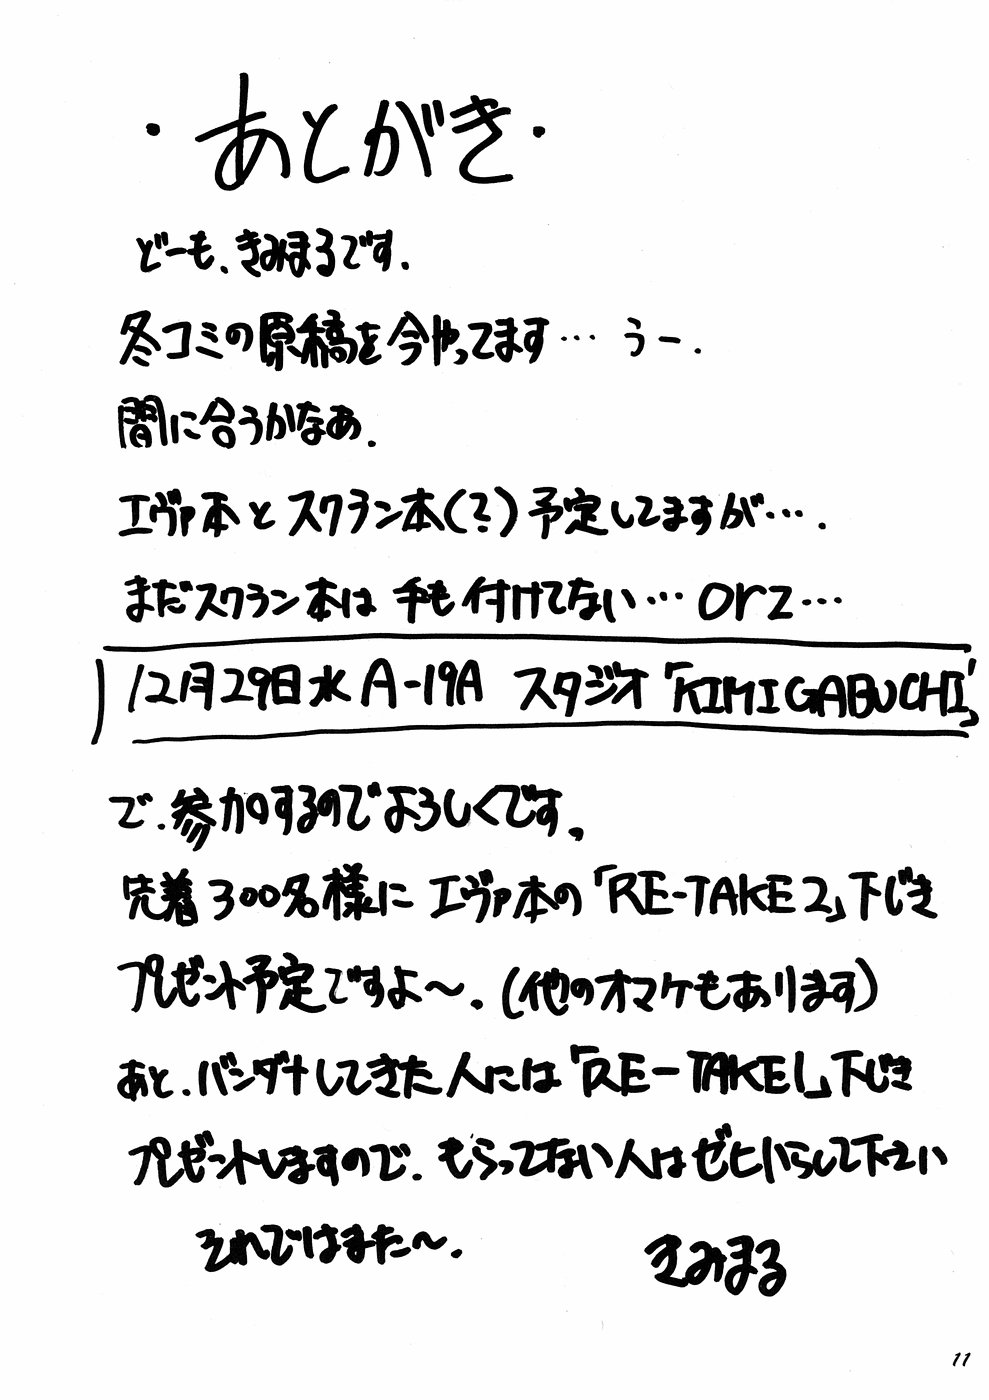 ・あとがき・
どーも、きみまるです.
冬コミの原稿を今やってます… うー.
間に合うかなあ.
エヴァ本とスクラン本(?)予定してますが….
まだスクラン本は手も付けてない… orz…
12月29日水 A-19A スタジオ「KIMIGABUCHI」
で.参加するのでよろしくです。
先着300名様にエヴァ本の「RE-TAKE2」下じき
プレゼント予定ですよ〜.(他のオマケもあります)
あと.バンダナしてきた人には「RE-TAKE1」下じき
プレゼントしますので.もらってない人はゼヒいらして下さい
それではまた〜.
きみまる
11